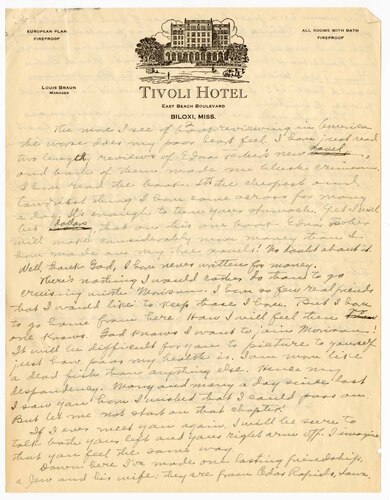 EUROPEAN PLAN
FIREPROOF
ALL ROOMS WITH BATH
FIREPROOF
LOUIS BRAUN
MANAGER
TIVOLI HOTEL
EAST BEACH BOULEVARD
BILOXI, MISS.
The more I see of book reviewing in America
the worse does my poor heart feel. I have just read
two lengthy reviews of Edna Ferber's new novel
and both of them made me blush crimson.
I have read the book. It's the cheapest and
thing I have come across for many
a day. It's enough to turn your stomach. Yet I will
bet that on this one book Edna Ferber
will make considerably more money than I
have made on all my novels! No doubt about it.
Well thank God, I have never written for money.
There's nothing I would rather do than to go
cruising with Morison. I have so few real friends
that I would like to keep those I have. But I have
to go home from here. How I will feel then no
one knows. God knows I want to join Morison!
It will be difficult for you to picture to yourself
just how poor my health is. I am more like
a dead fish than anything else. Hence my
despondency. Many and many a day since last
I saw you have I wished that I could pass on.
But let me not start on that chapter!
If I ever meet you again, I will be sure to
talk both your left and your right arm off. I imagine
that you feel the same way.
Down here I've made one lasting friendship,
a Jew and his wife; they are from Cedar Rapids, Iowa.